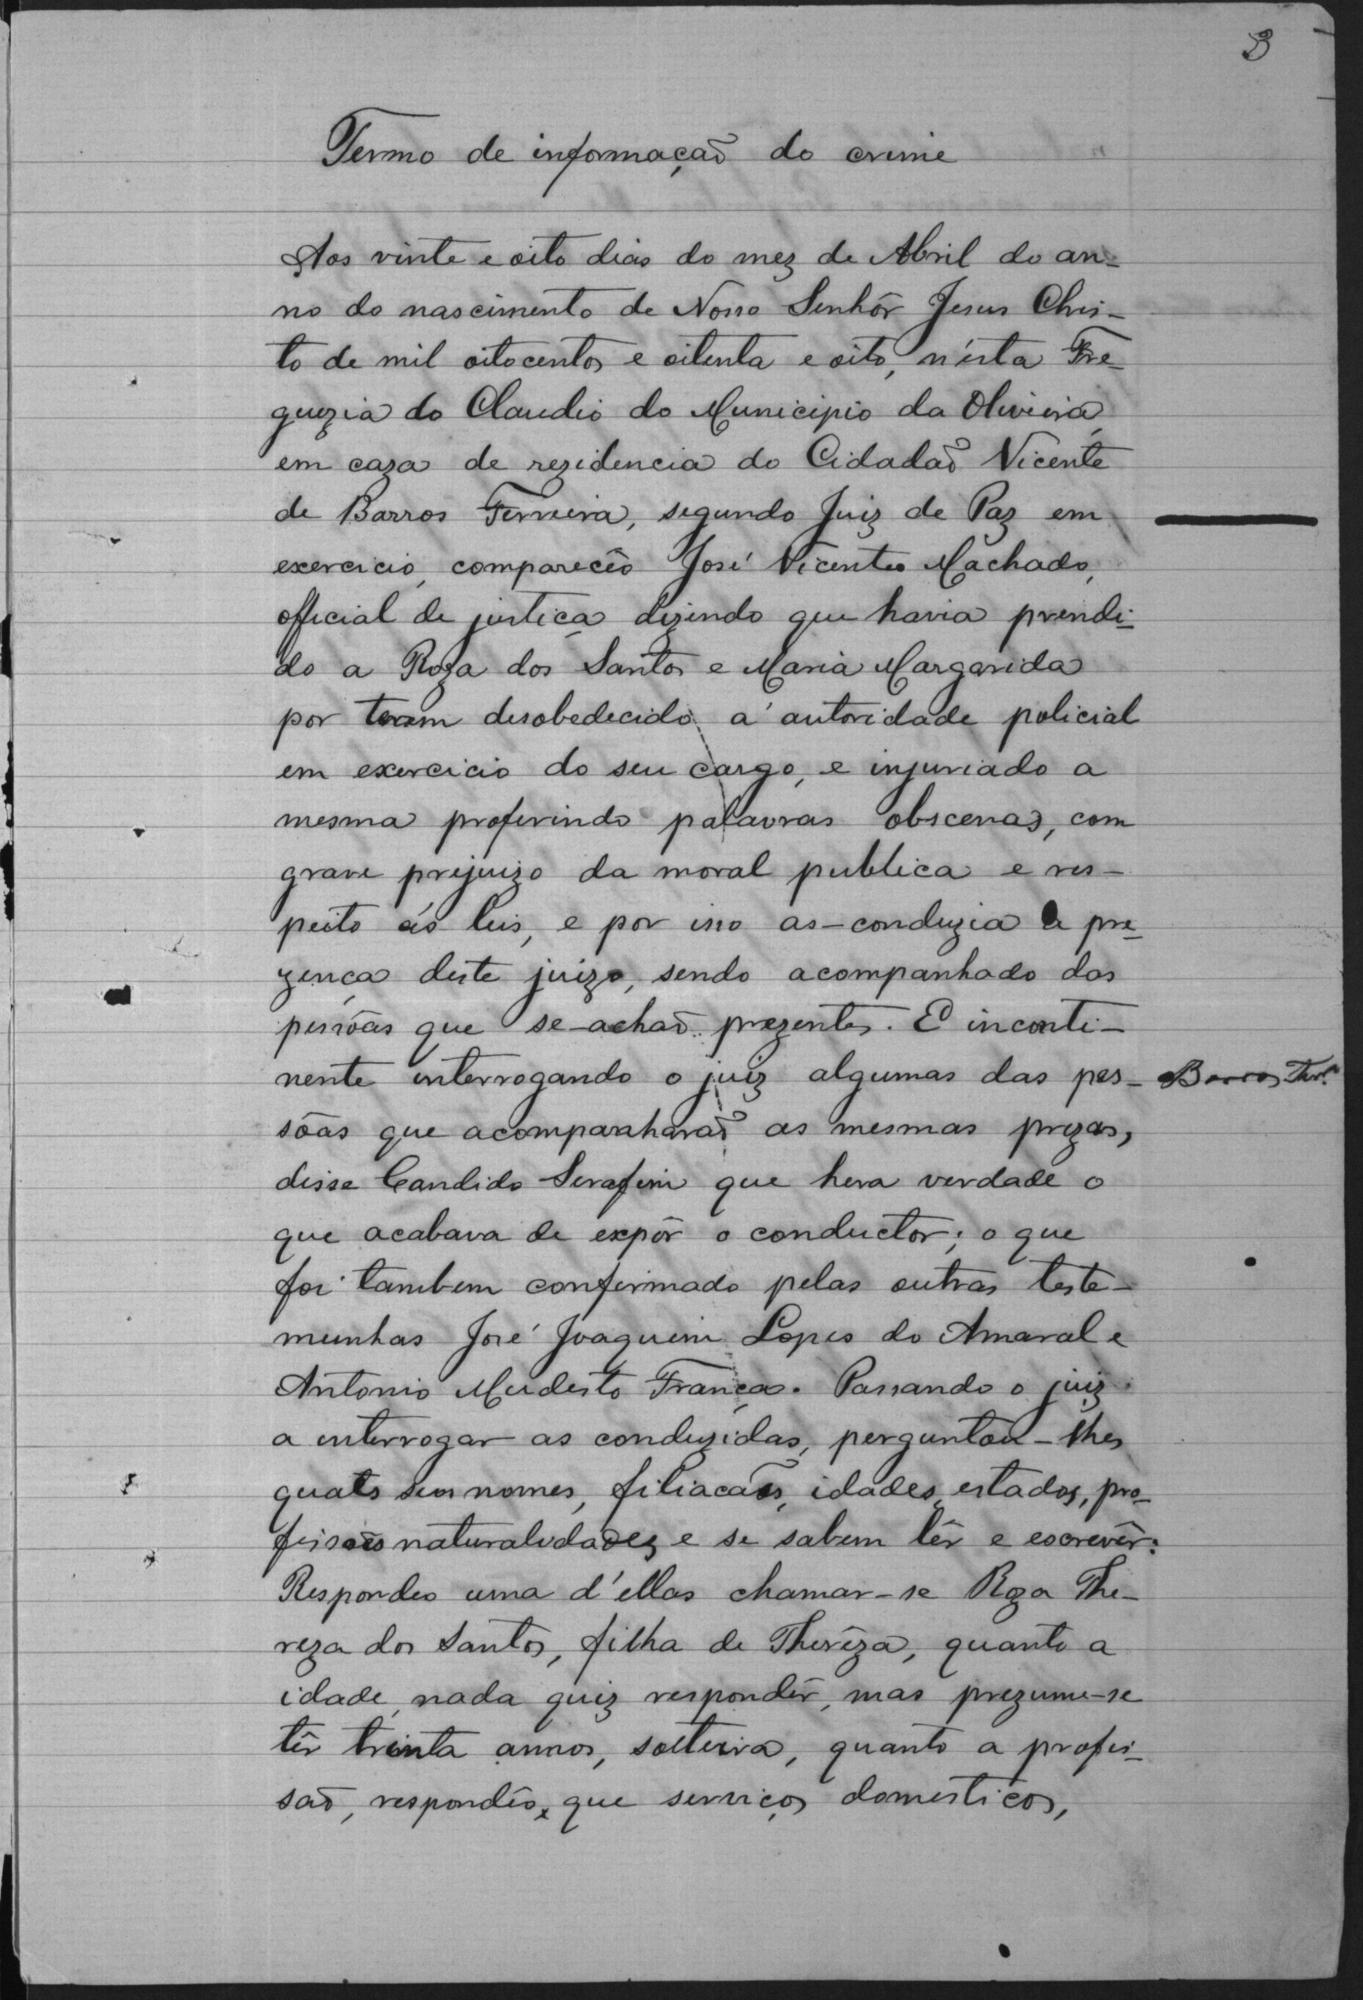 3
Termo de informação do crime
Aos vinte e oito dias do mez de Abril do an-
no do nascimento de Nosso Senhôr Jesus Chris-
to de mil oitocentos e oitenta e oito, n'ésta Fre-
guezia do Claudio do Municipio da Oliveira,
em caza de rezidencia do Cidadaõ Vicente
de Barros Ferreira, segundo Juiz de Paz em
exercicio, comparecêo José Vicente Machado,
official de justiça dizendo que havia prendi-
do a Roza dos Santos e Maria Margarida
por terem desobedecido á autoridade policial
em exercicio do seu cargo, e injuriado a
mesma proferindo palavras obscenas, com
grave prejuizo da moral publica e res-
peito ás leis, e por isso as-conduzia a pre-
zença deste juizo, sendo acompanhado das
pessôas que se-achaõ prezentes. E inconti-
nente interrogando o juiz algumas das pes-
Barros Ferrª
sôas que acompanharaõ as mesmas prezas,
disse Candido Serafim que hera verdade o
que acabava de expôr o conductor; o que
foi tambem confirmado pelas outras teste-
munhas José Joaquim Lopes do Amaral e
Antonio Mudesto França. Passando o juiz
a interrogar as conduzidas, perguntou-lhes
quaes seus nomes, filiacoẽs, idades, estados, pro-
fissoẽs naturalidades, e se sabem lêr e escrevêr:
Respondeo uma d'ellas chamar-se Roza The-
reza dos Santos, filha de Therêza, quanto a
idade, nada quiz respondêr, mas prezume-se
têr trinta annos, solteira, quanto a profis-
saõ, respondêo, que serviços domesticos,